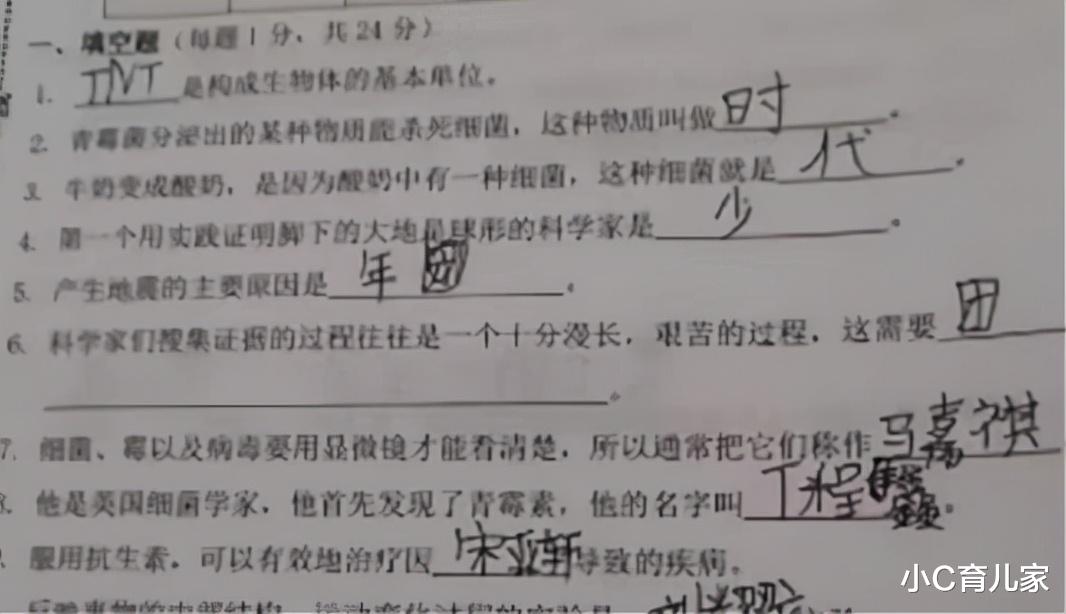 一、填空题（每题1分、共24分）
1. TNT 是构成生物体的基本单位。
2. 青霉菌分泌出的某种物质能杀死细菌，这种物质叫做 时 。
3. 牛奶变成酸奶，是因为酸奶中有一种细菌，这种细菌就是 代 。
4. 第一个用实践证明脚下的大地是球形的科学家是 少 。
5. 产生地震的主要原因是 年 。
6. 科学家们搜集证据的过程往往是一个十分漫长，艰苦的过程，这需要 团
。
7. 细菌、霉以及病毒要用显微镜才能看清楚，所以通常把它们称作 马嘉祺
8. 他是英国细菌学家，他首先发现了青霉素，他的名字叫 丁程 。
服用抗生素。可以有效地治疗因 宋亚轩 导致的疾病。
小C育儿家